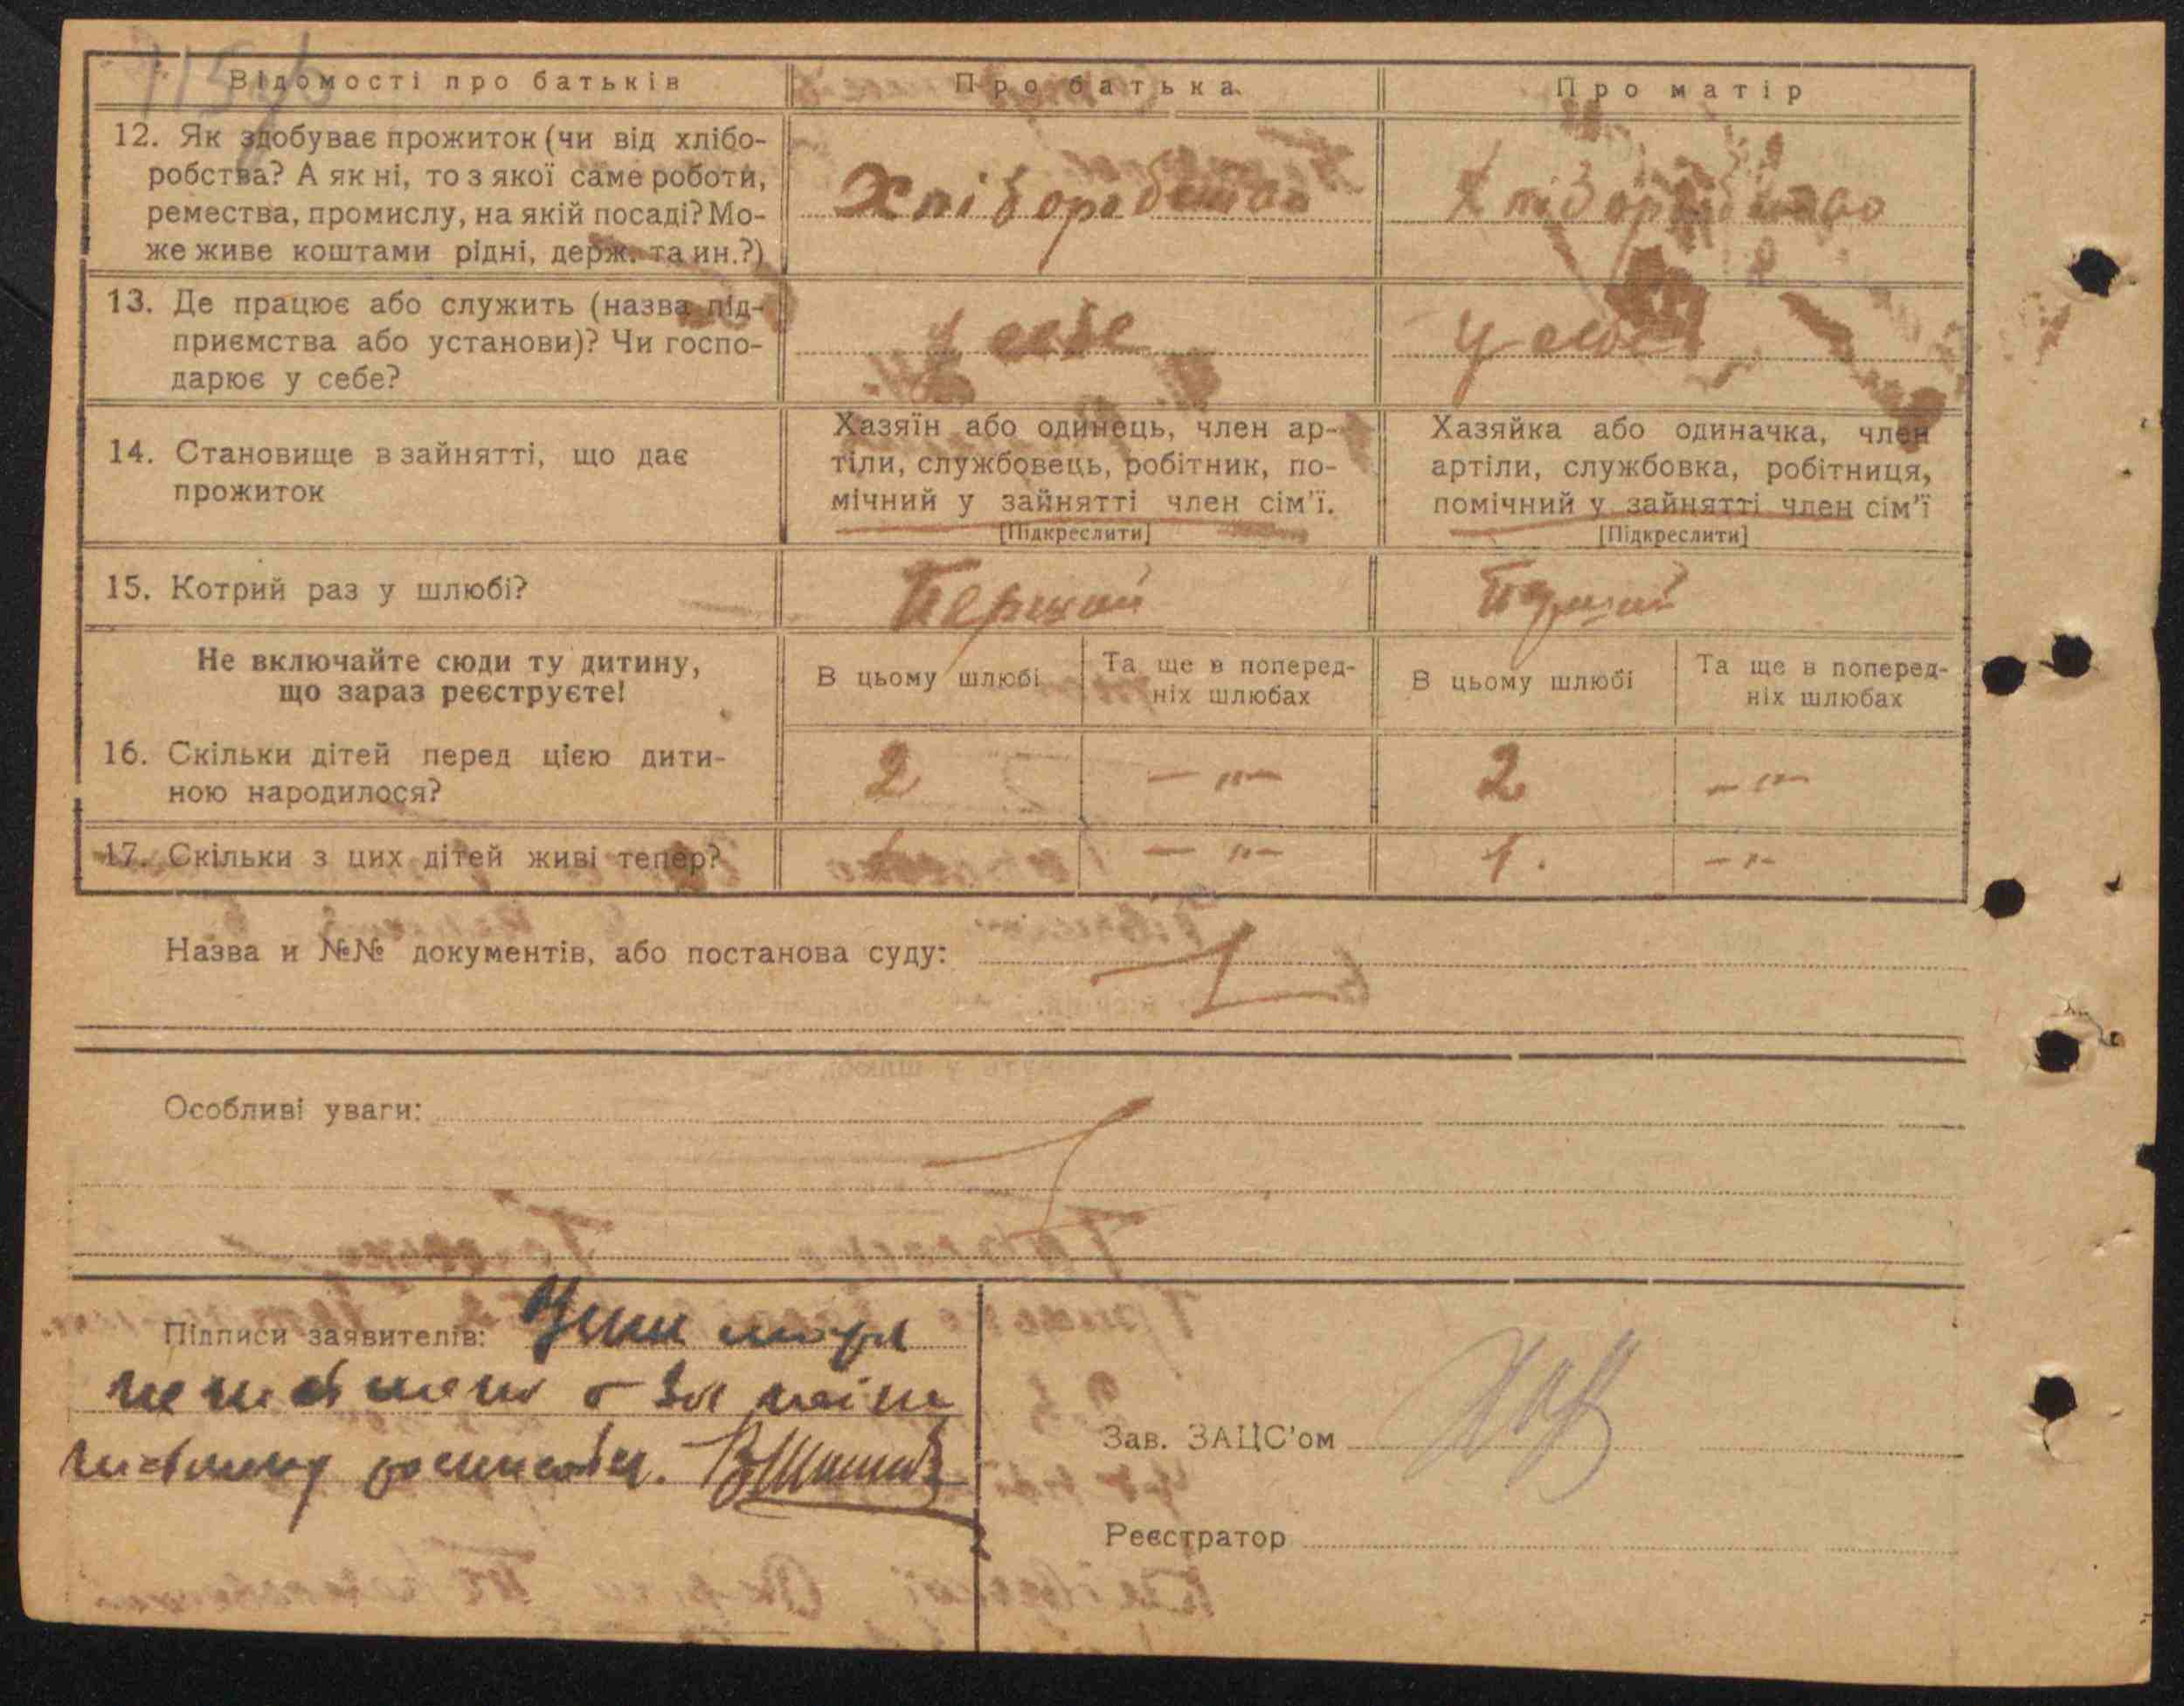 Відомості про батьків
Про батька
Про матір
12. Як здобуває прожиток (чи від хлібо-
робства? А як ні, то з якої саме роботи,
ремества, промислу, на якій посаді? Мо-
же живе коштами рідні, держ. та ин.?)
Хліборобство
Хліборобство
13. Де працює або служить (назва під-
приємства або установи)? Чи госпо-
дарює у себе?
У себе
У себе
14. Становище в зайнятті, що дає
прожиток
Хазяїн або одинець, член ар-
тіли, службовець, робітник, по-
мічний у зайнятті член сім'ї.
[Підкреслити]
Хазяйка або одиначка, член
артіли, службовка, робітниця,
помічний у зайнятті член сім'ї
[Підкреслити]
15. Котрий раз у шлюбі?
Перший
Перший
Не включайте сюди ту дитину,
що зараз реєструєте!
В цьому шлюбі
Та ще в поперед-
ніх шлюбах
В цьому шлюбі
Та ще в поперед-
ніх шлюбах
16. Скільки дітей перед цією дити-
ною народилося?
2
— „ —
2
— „ —
17. Скільки з цих дітей живі тепер?
— „ —
1.
— „ —
Назва и №№ документів, або постанова суду:
Особливі уваги:
Підписи заявителів:
Зав. ЗАЦС'ом
Реєстратор